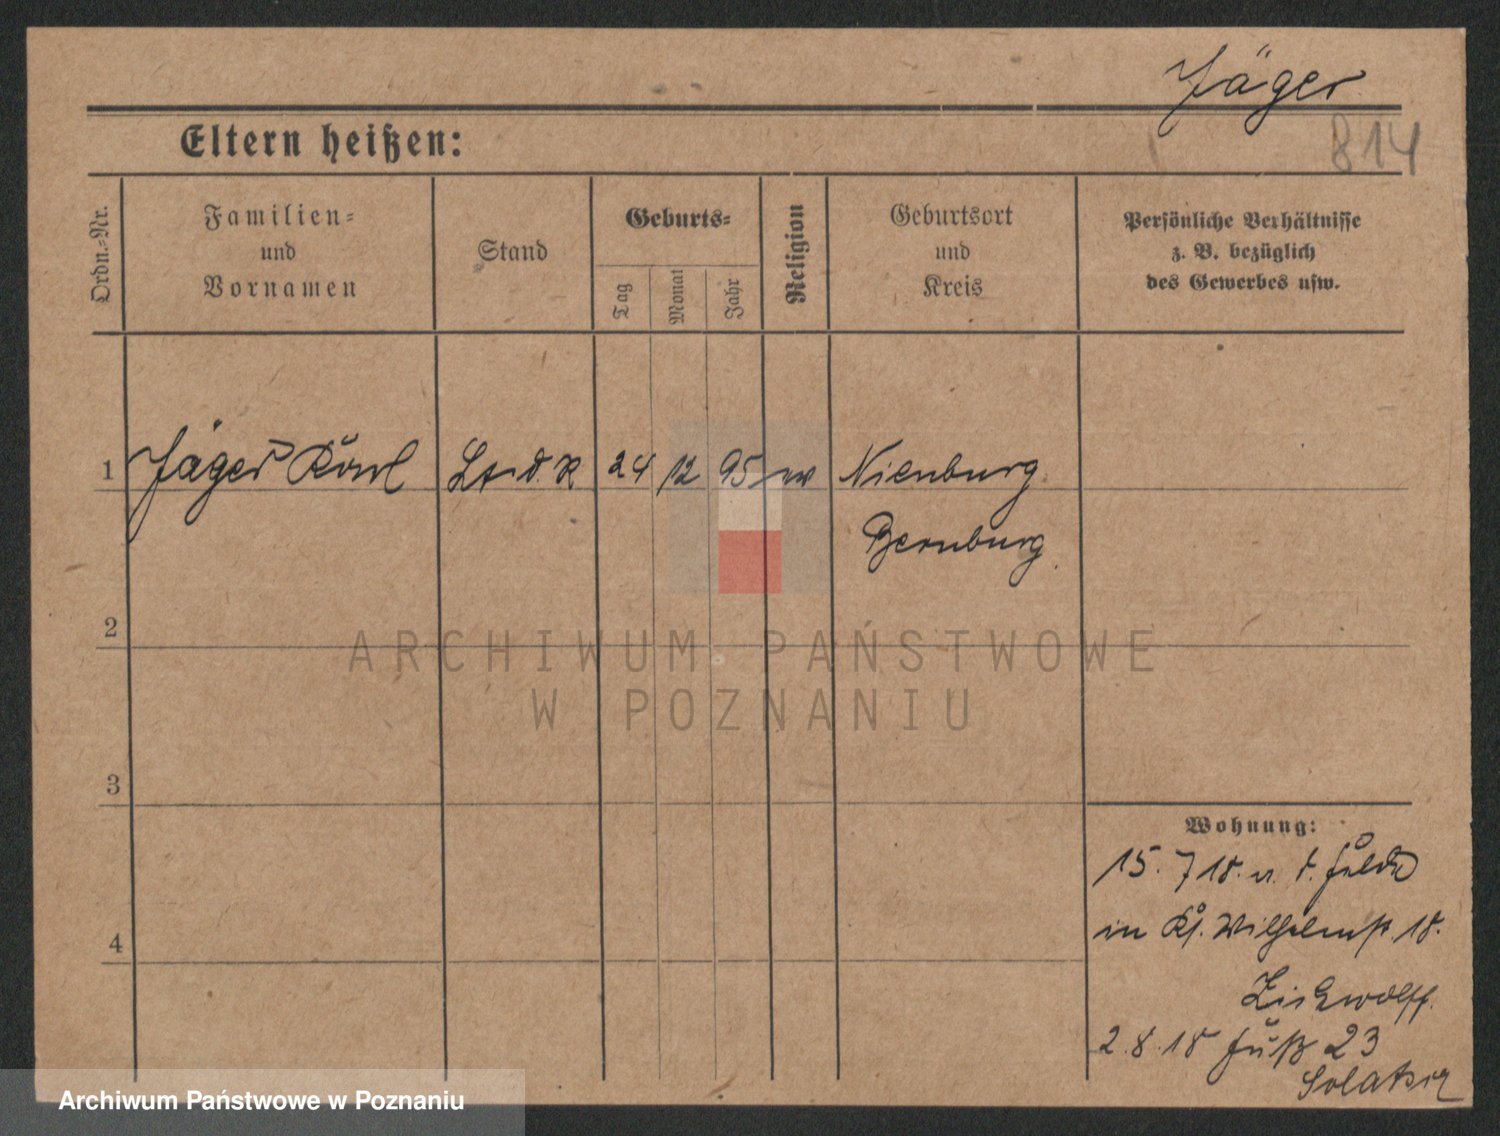 Jäger
814
Eltern heißen:
Ordn.-Nr.
Familien-
und
Vornamen
Stand
Geburts-
Tag
Monat
Jahr
Religion
Geburtsort
und
Kreis
Persönliche Verhältnisse
z. B. bezüglich
des Gewerbes usw.
1 Jäger Karl Lt. d. R 24 12 95 ev Nienburg
Bernburg.
2
ARCHIWUM PAŃSTWOWE
W POZNANIU
3
Wohnung:
15. 7 18. v. d. Felde
in Kl. Wilhelmst 18.
4
2.8.18 Fuß 23
Solatsch
Archiwum Państwowe w Poznaniu